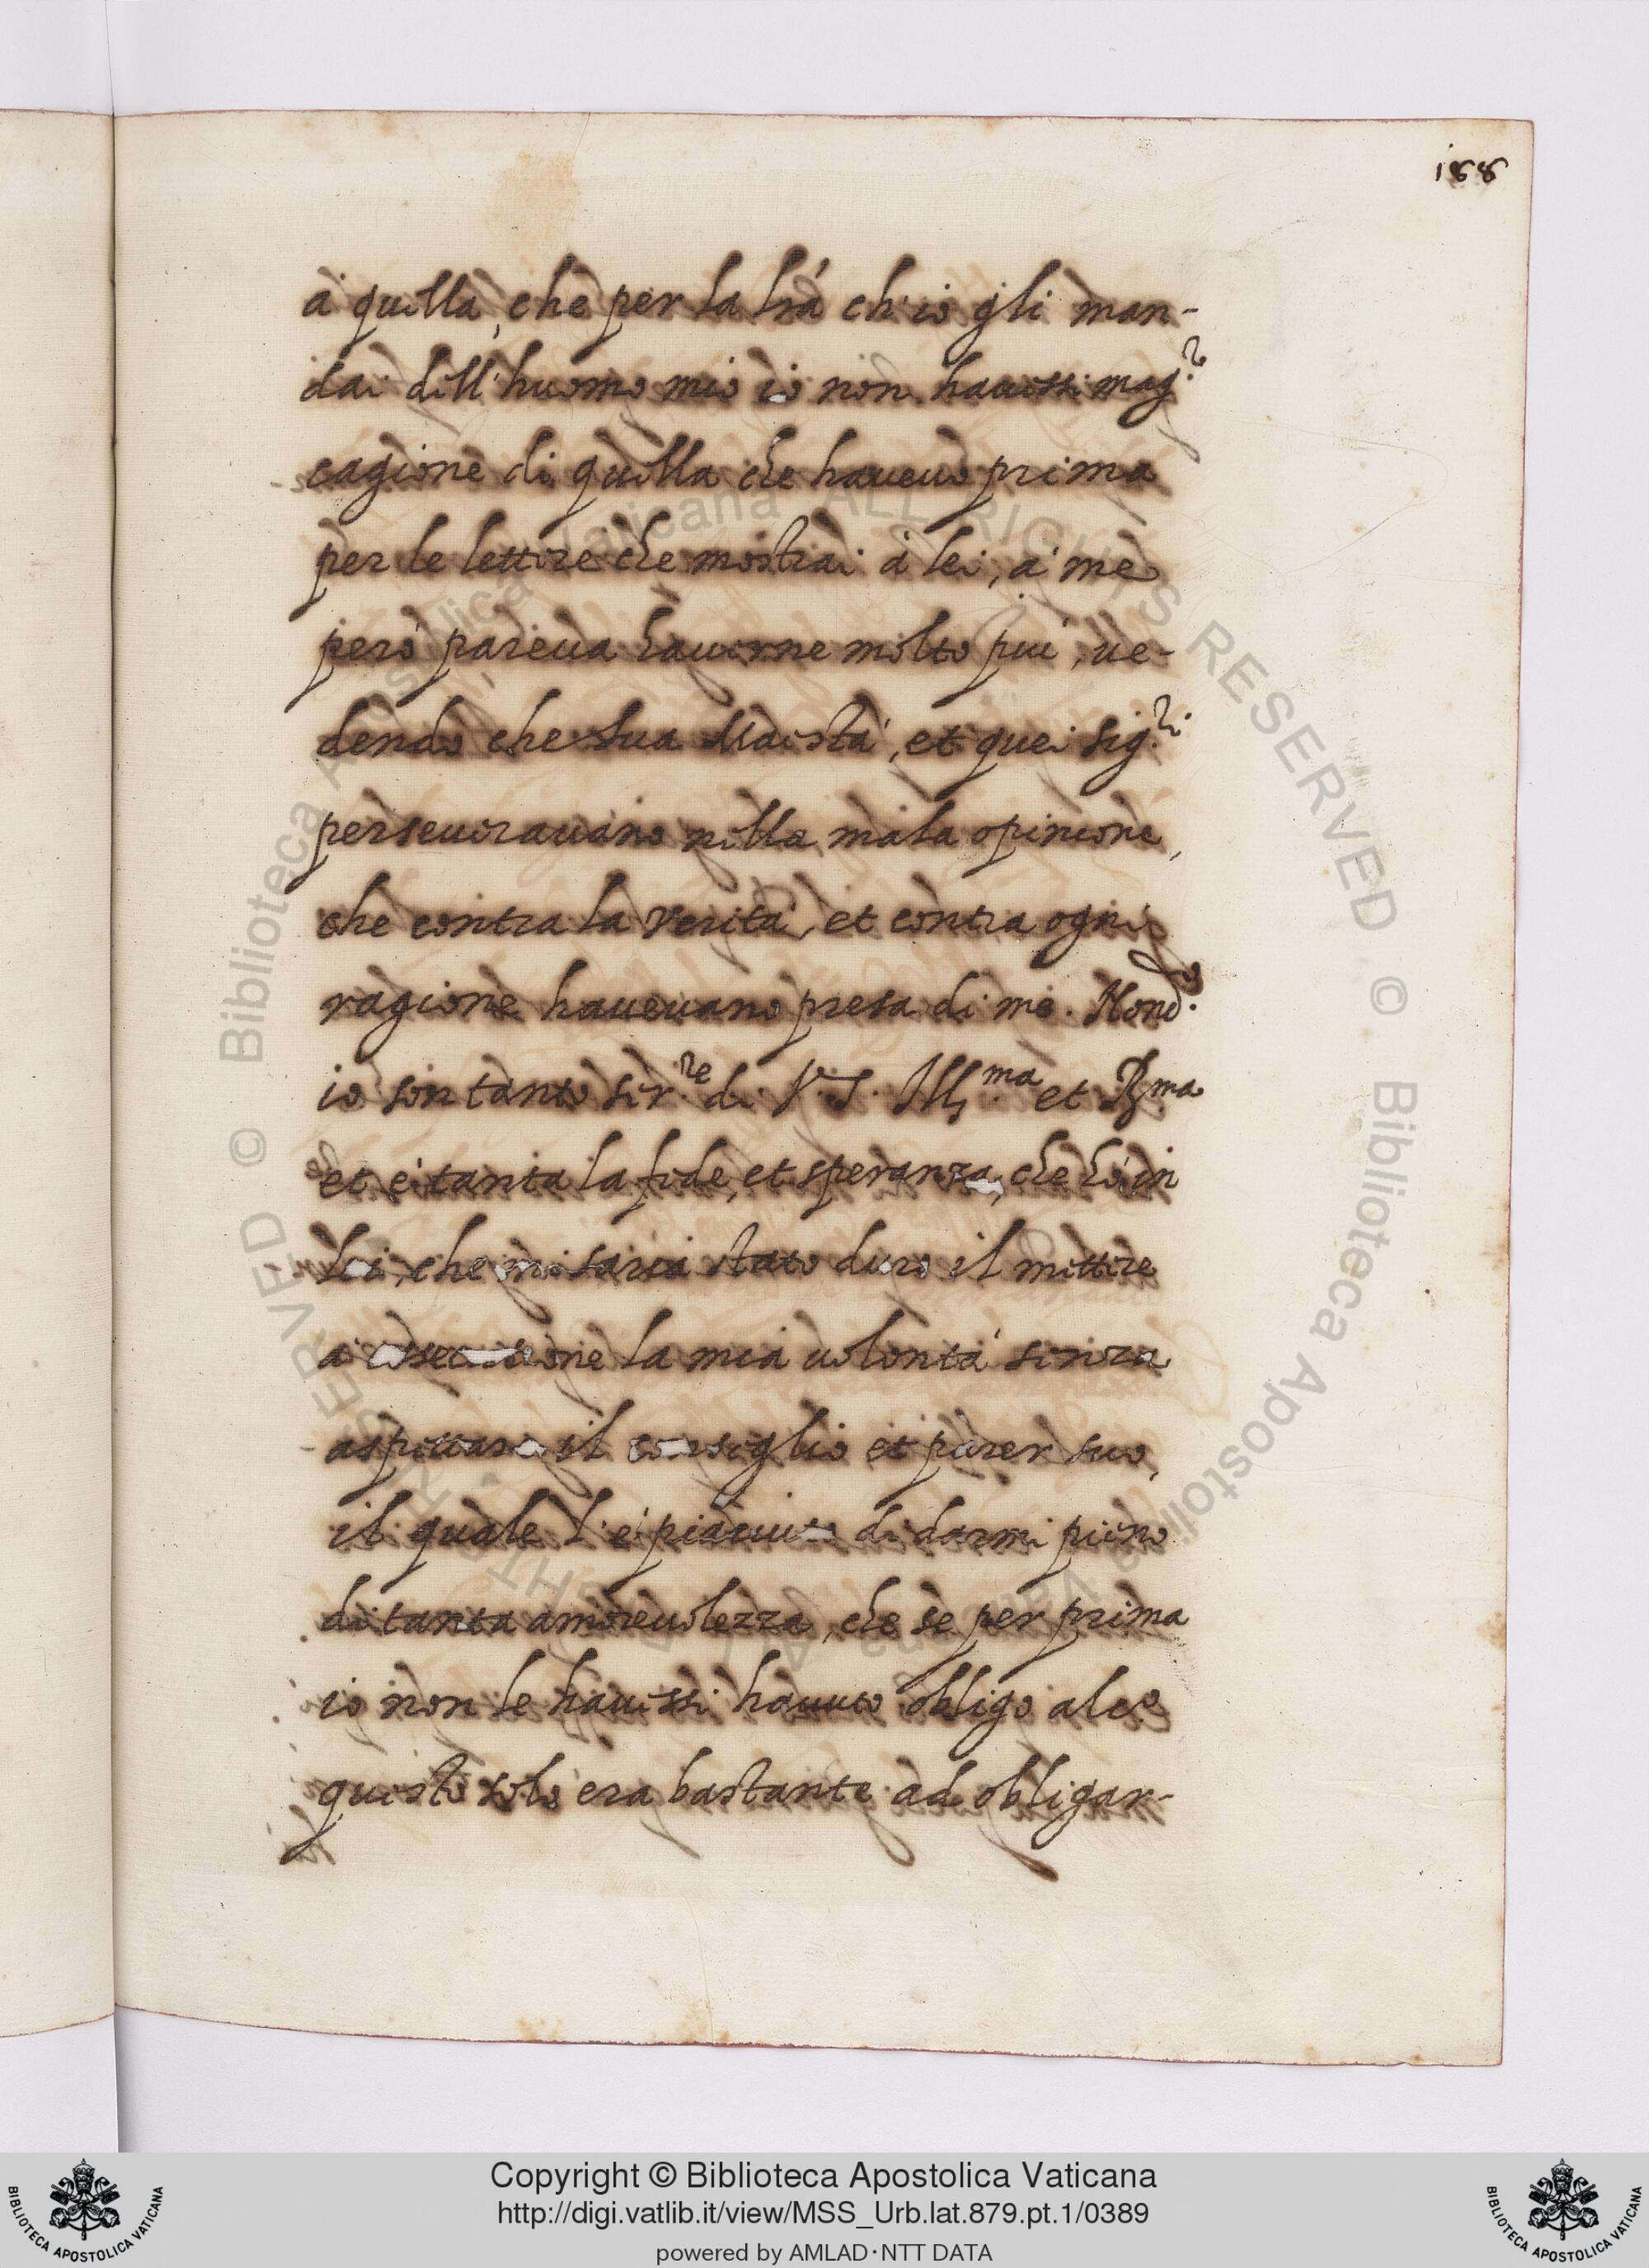 188
à quella, che per la lrã ch'io gli man-
dai dell'huomo mio io non havessi mag.r
cagione di quella che havevo prima
per le lettere che mostrai à lei, à me
però pareva haverne molto piú, ve-
dendo che sua Maestà, et quei sig.ri
perseveravano nella mala opinione,
che contra la verità, et contra ogni
ragione havevano presa di me.
io son tanto ser.re di V.S. Ill.ma et R.ma
et è tanta la fede, et speranza, che hò in
lei, che mi saria stato duro il mettere
a essecutione la mia volontà senza
aspettare il consiglio et parer suo,
il quale l'è piaciuto di darmi pieno
di tanta amorevolezza, che se per prima
io non le havessi havuto obligo alc.o
questo solo era bastante ad obligar-
Copyright © Biblioteca Apostolica Vaticana
http://digi.vatlib.it/view/MSS_Urb.lat.879.pt.1/0389
powered by AMLAD·NTT DATA
BIBLIOTECA APOSTOLICA VATICANA
BIBLIOTECA APOSTOLICA VATICANA